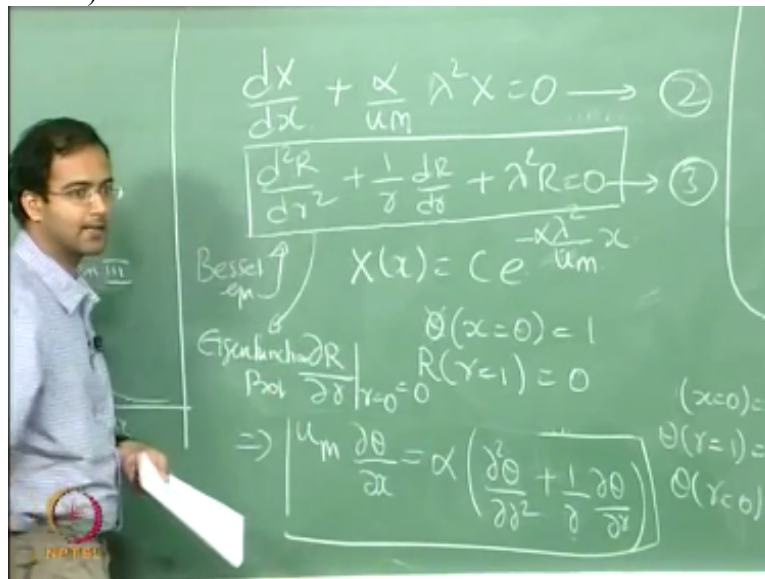 dX/dx + α/um λ²X = 0 → ②
d²R/dr² + 1/r dR/dr + λ²R = 0 → ③
Bessel
eqn
X(x) = C e^(-αλ²/um x)
θ(x=0) = 1
Eigenfunction ∂R/∂r|r=0 = 0
R(r=1) = 0
(x=0)=
⇒ um ∂θ/∂x = α(∂²θ/∂r² + 1/r ∂θ/∂r)
θ(r=1)=
θ(r=0)
NPTEL